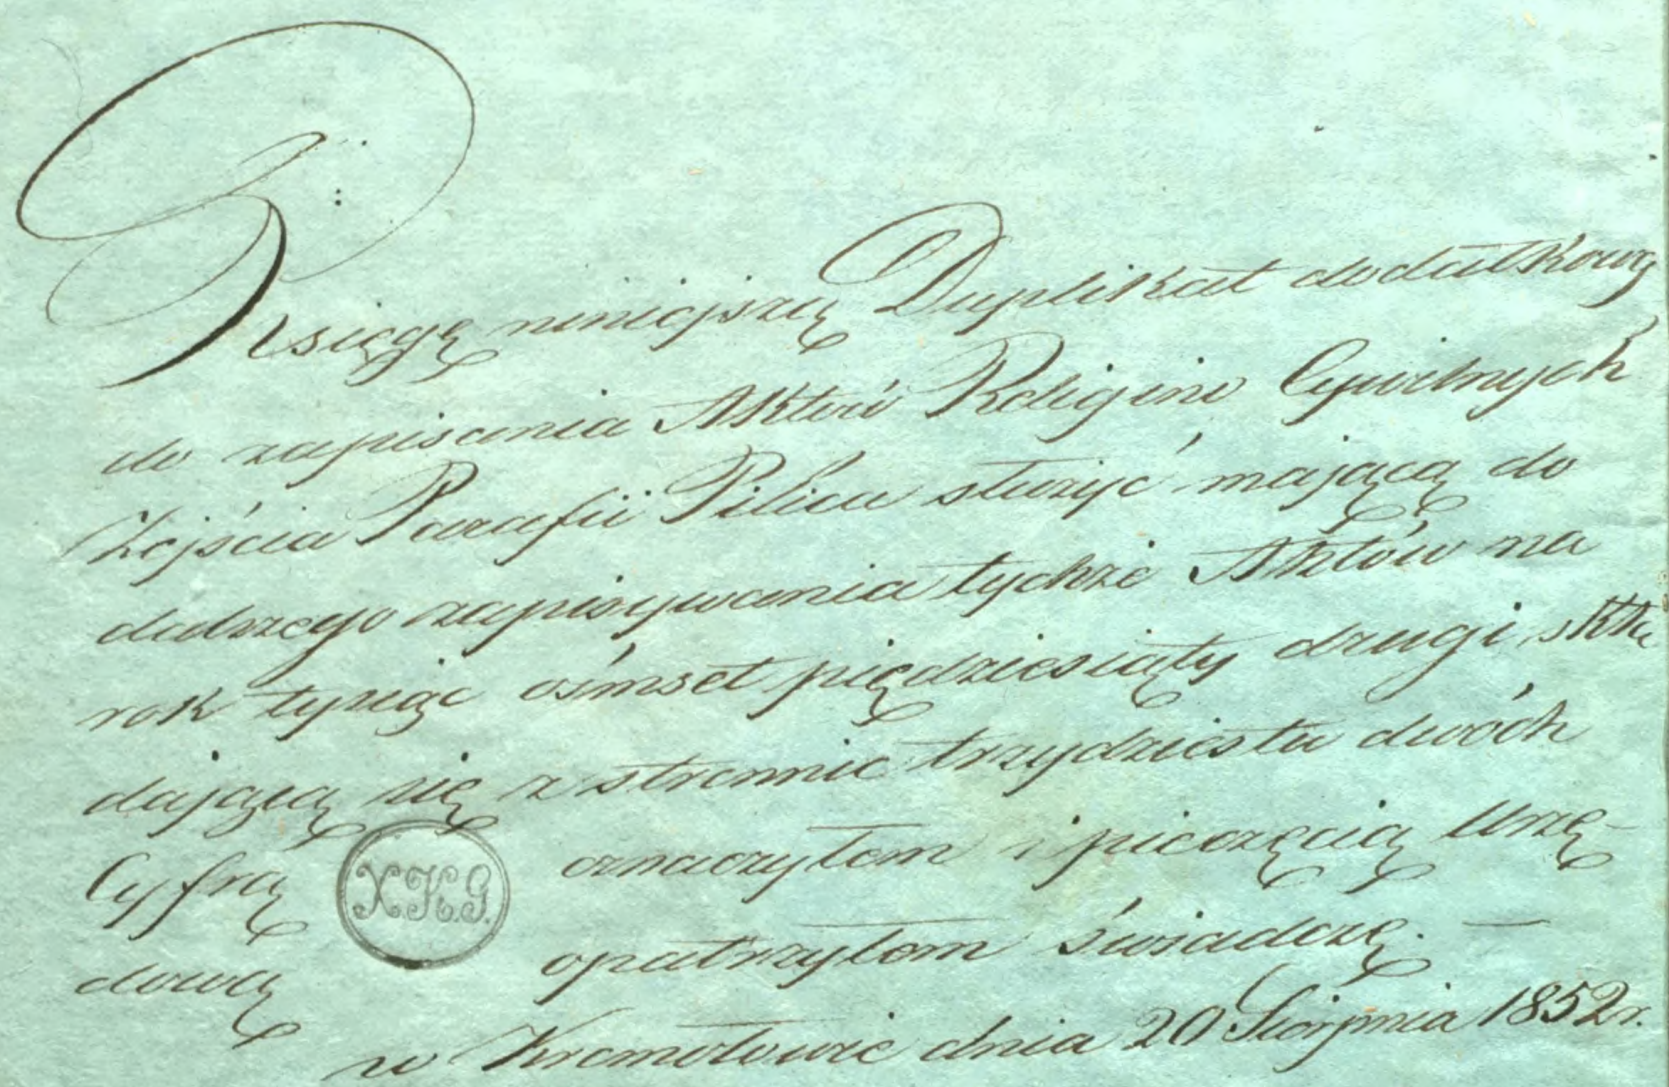 Księgę niniejszą Duplikat dodatkową
do zapisania Aktów Religino Cywilnych
Zejścia Parafii Pilica służyć mającą do
dalszego zapisywania tychże Aktów na
rok tysiąc ośmset pięдziesiąty drugi, skła
dającą się z stronnic trzydziestu dwóch
Cyfrą X.K.G. oznaczyłem i pieczęcią Urzę-
dową opatrzyłem świadczę. —
w Kromołowie dnia 20 Sierpnia 1852 r.